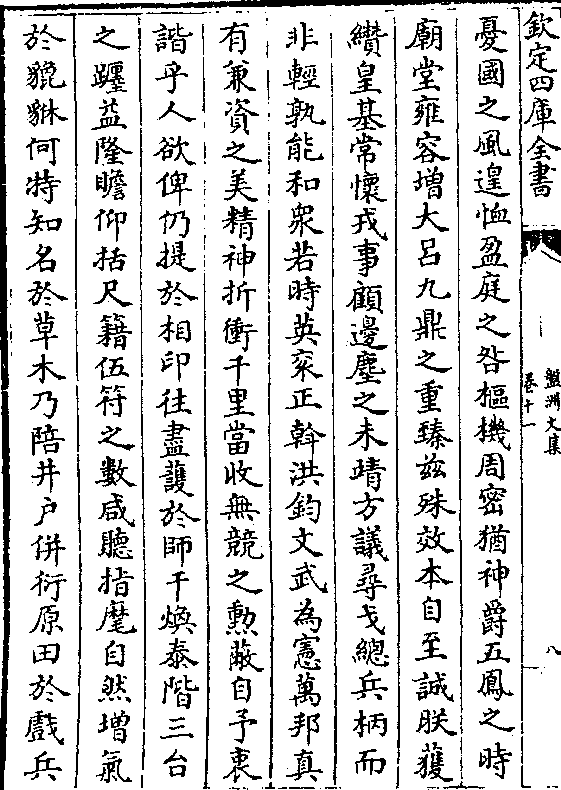 欽定四庫全書
盤洲文集
卷十一
八
憂國之風遑恤盈庭之咎樞機周密猶神爵五鳳之時
廟堂雍容増大呂九鼎之重臻兹殊效本自至誠朕獲
纉皇基常懷戎事顧邊塵之未靖方議尋戈總兵柄而
非輕孰能和衆若時英衮正斡洪鈞文武為憲萬邦真
有兼資之美精神折衝千里當收無競之勲蔽自予衷
諧乎人欲俾仍提於相印往盡護於師干煥泰階三台
之躔益隆瞻仰括尺籍伍符之數咸聽指麾自然増氣
於貔貅何特知名於草木乃陪井戶併衍原田於戲兵